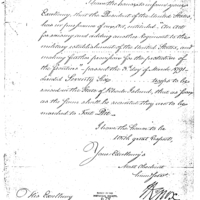 I have the honor to inform your
Excellency, that the President of the United States,
has in pursuance of the act, entitled, "An act
for raising and adding another regiment to the
military establishment of the United States, and
making farther provision for the protection of
the frontiers" - passed the 3d of March 1791,
directed Seventy Six to be
raised in the State of Rhode Island, that as soon
as the same shall be recruited they are to be
marched to Fort Pitt.
I have the honor to be
With great respect,
Your Excellency's
Most Obedient
humble Servt
HKnox
His Excellency